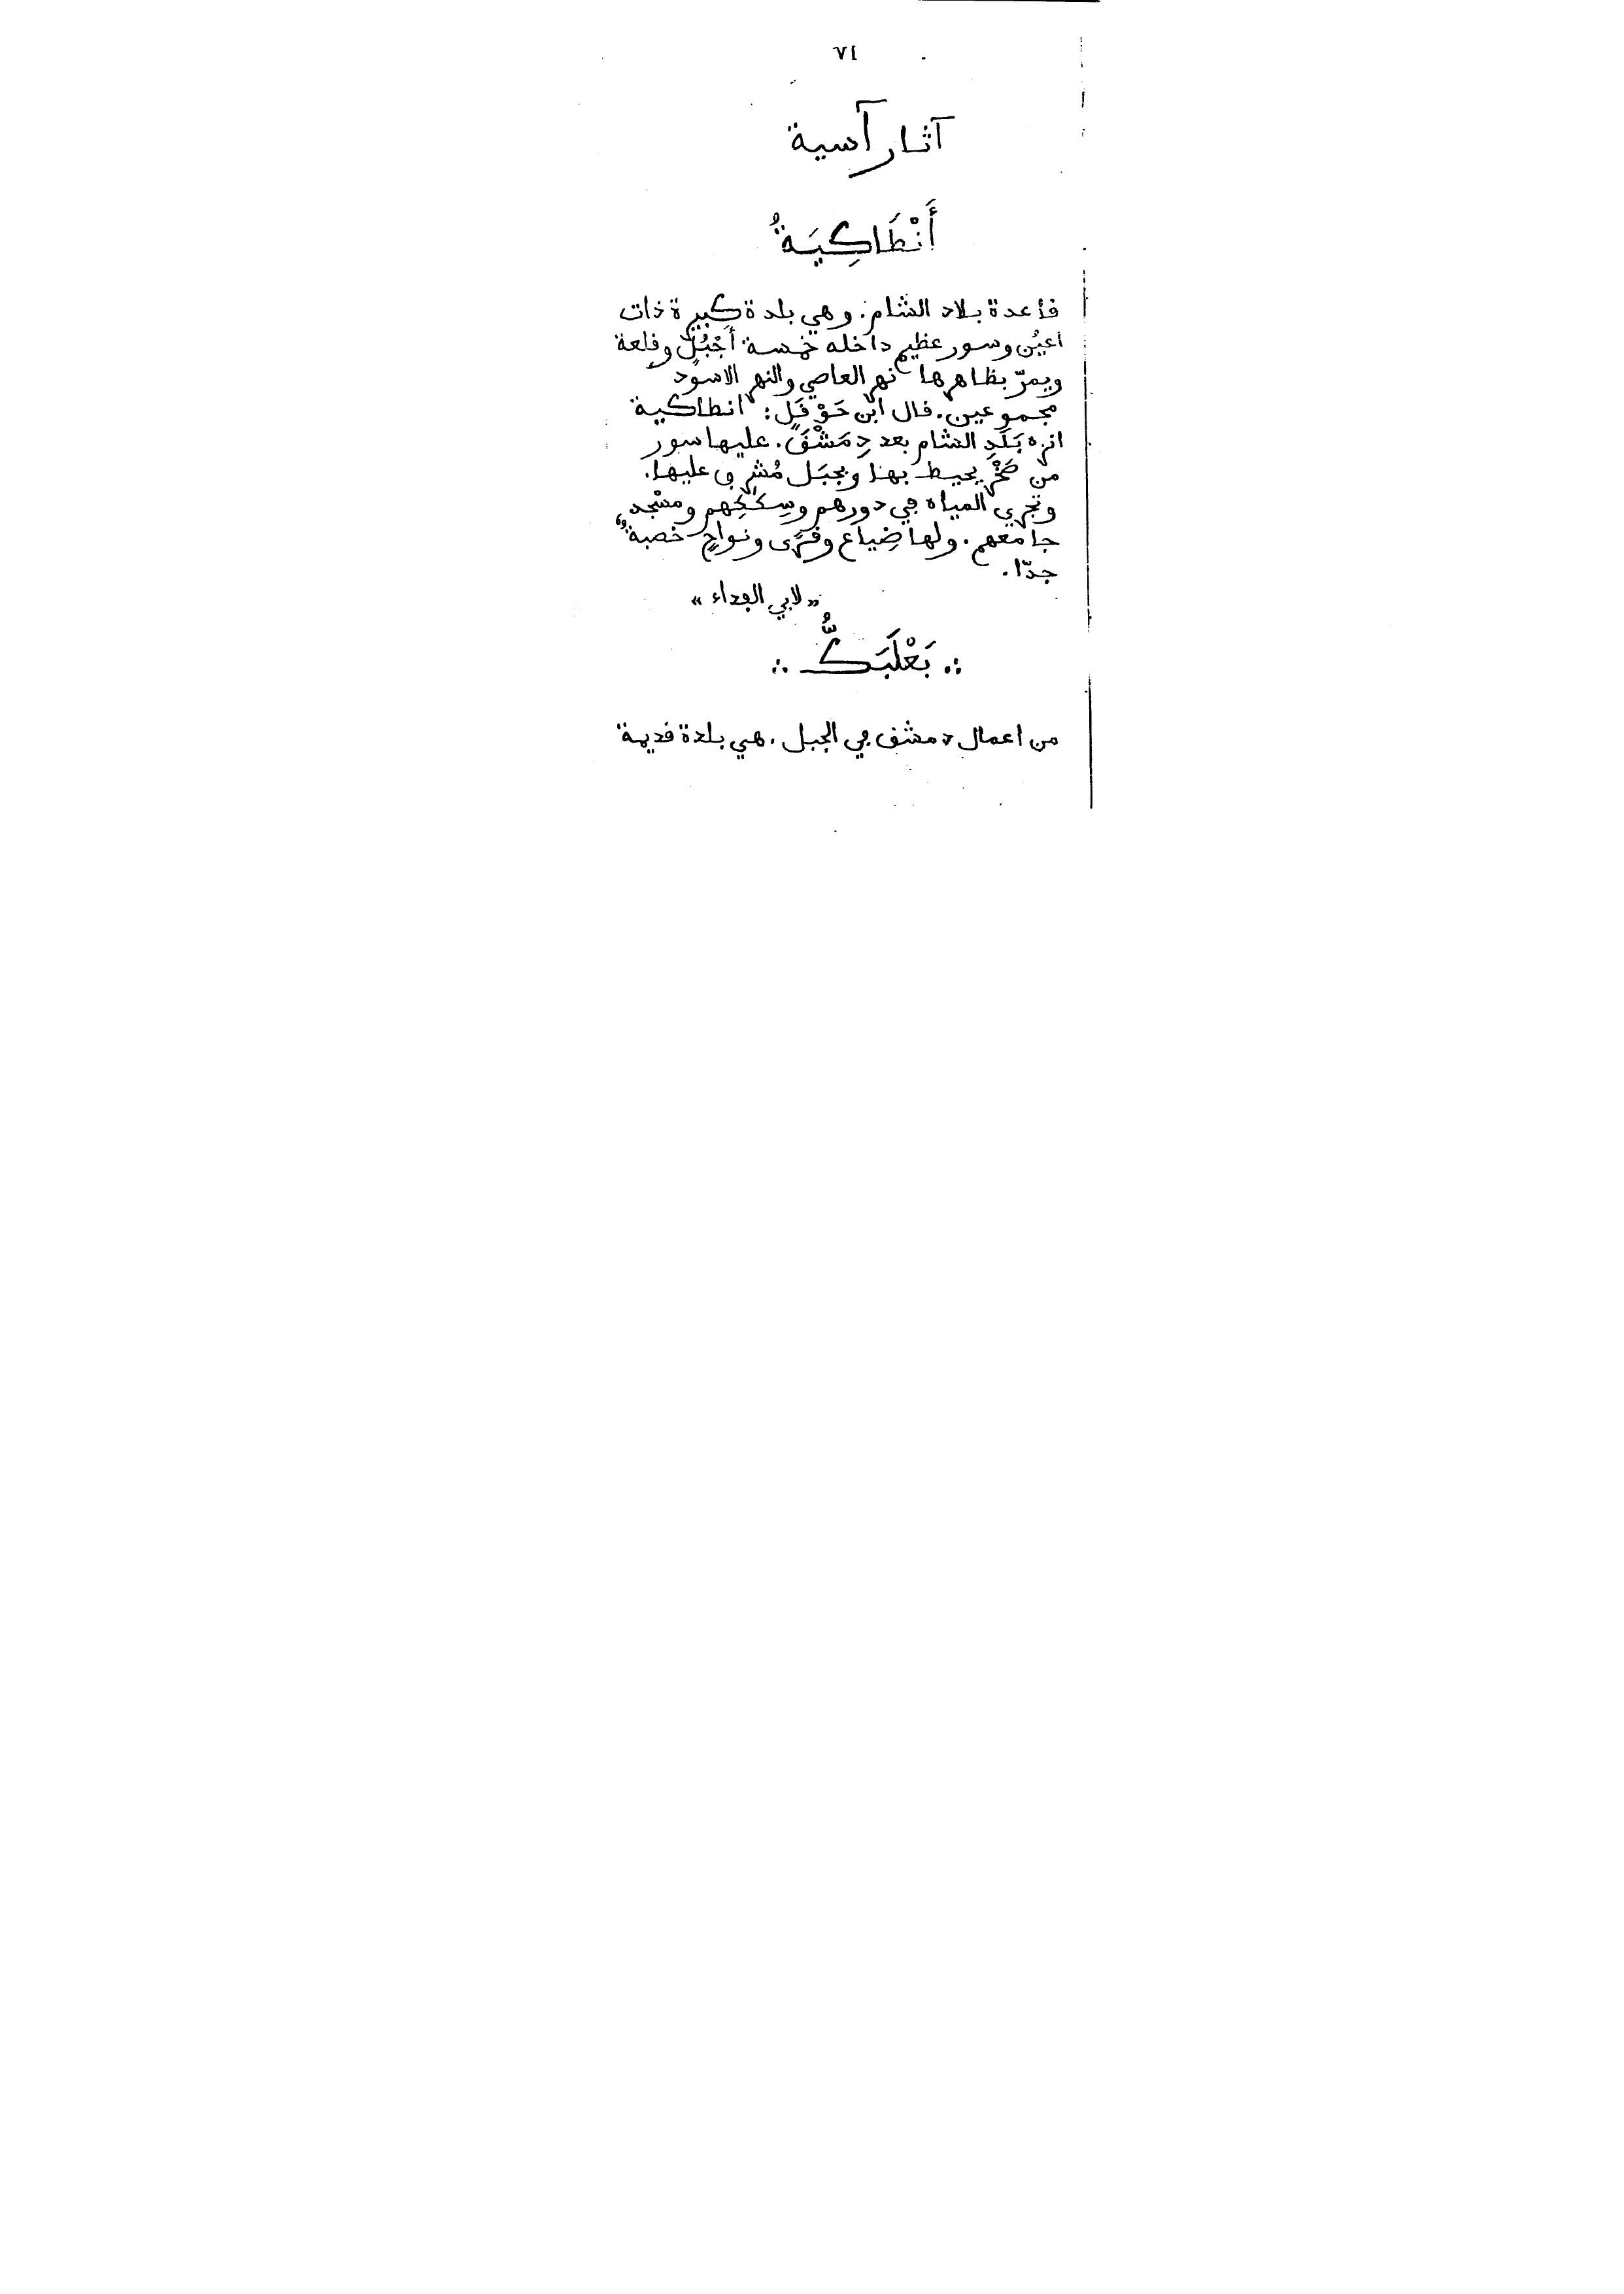 ٧١
آثار آسية
أَنْطَاكِيَةُ
قاعدة بلاد الشام. وهي بلدة كبيرة ذات
اعيُن وسور عظيم داخله خمسة أَجْبُلٍ وقلعة
ويمرّ بظاهرها نهر العاصي والنهر الاسوَد
مجموعين. قال ابن حَوْقَلٍ: انطاكية
انزه بَلَدِ الشام بعد دِمَشْقَ. عليها سور
من صَخْرٍ يحيط بها وبجبَل مُشرِف عليها.
وتجري المياه في دورهم وسِكَكِهم ومسْجد
جامعهم. ولها ضِياع وقُرًى ونواحٍ خصبةٌ
جدّا.
«لابي الفداء»
∴ بَعْلَبَكُّ ∴
من اعمال دمشق في الجبل. هي بلدة قديمة